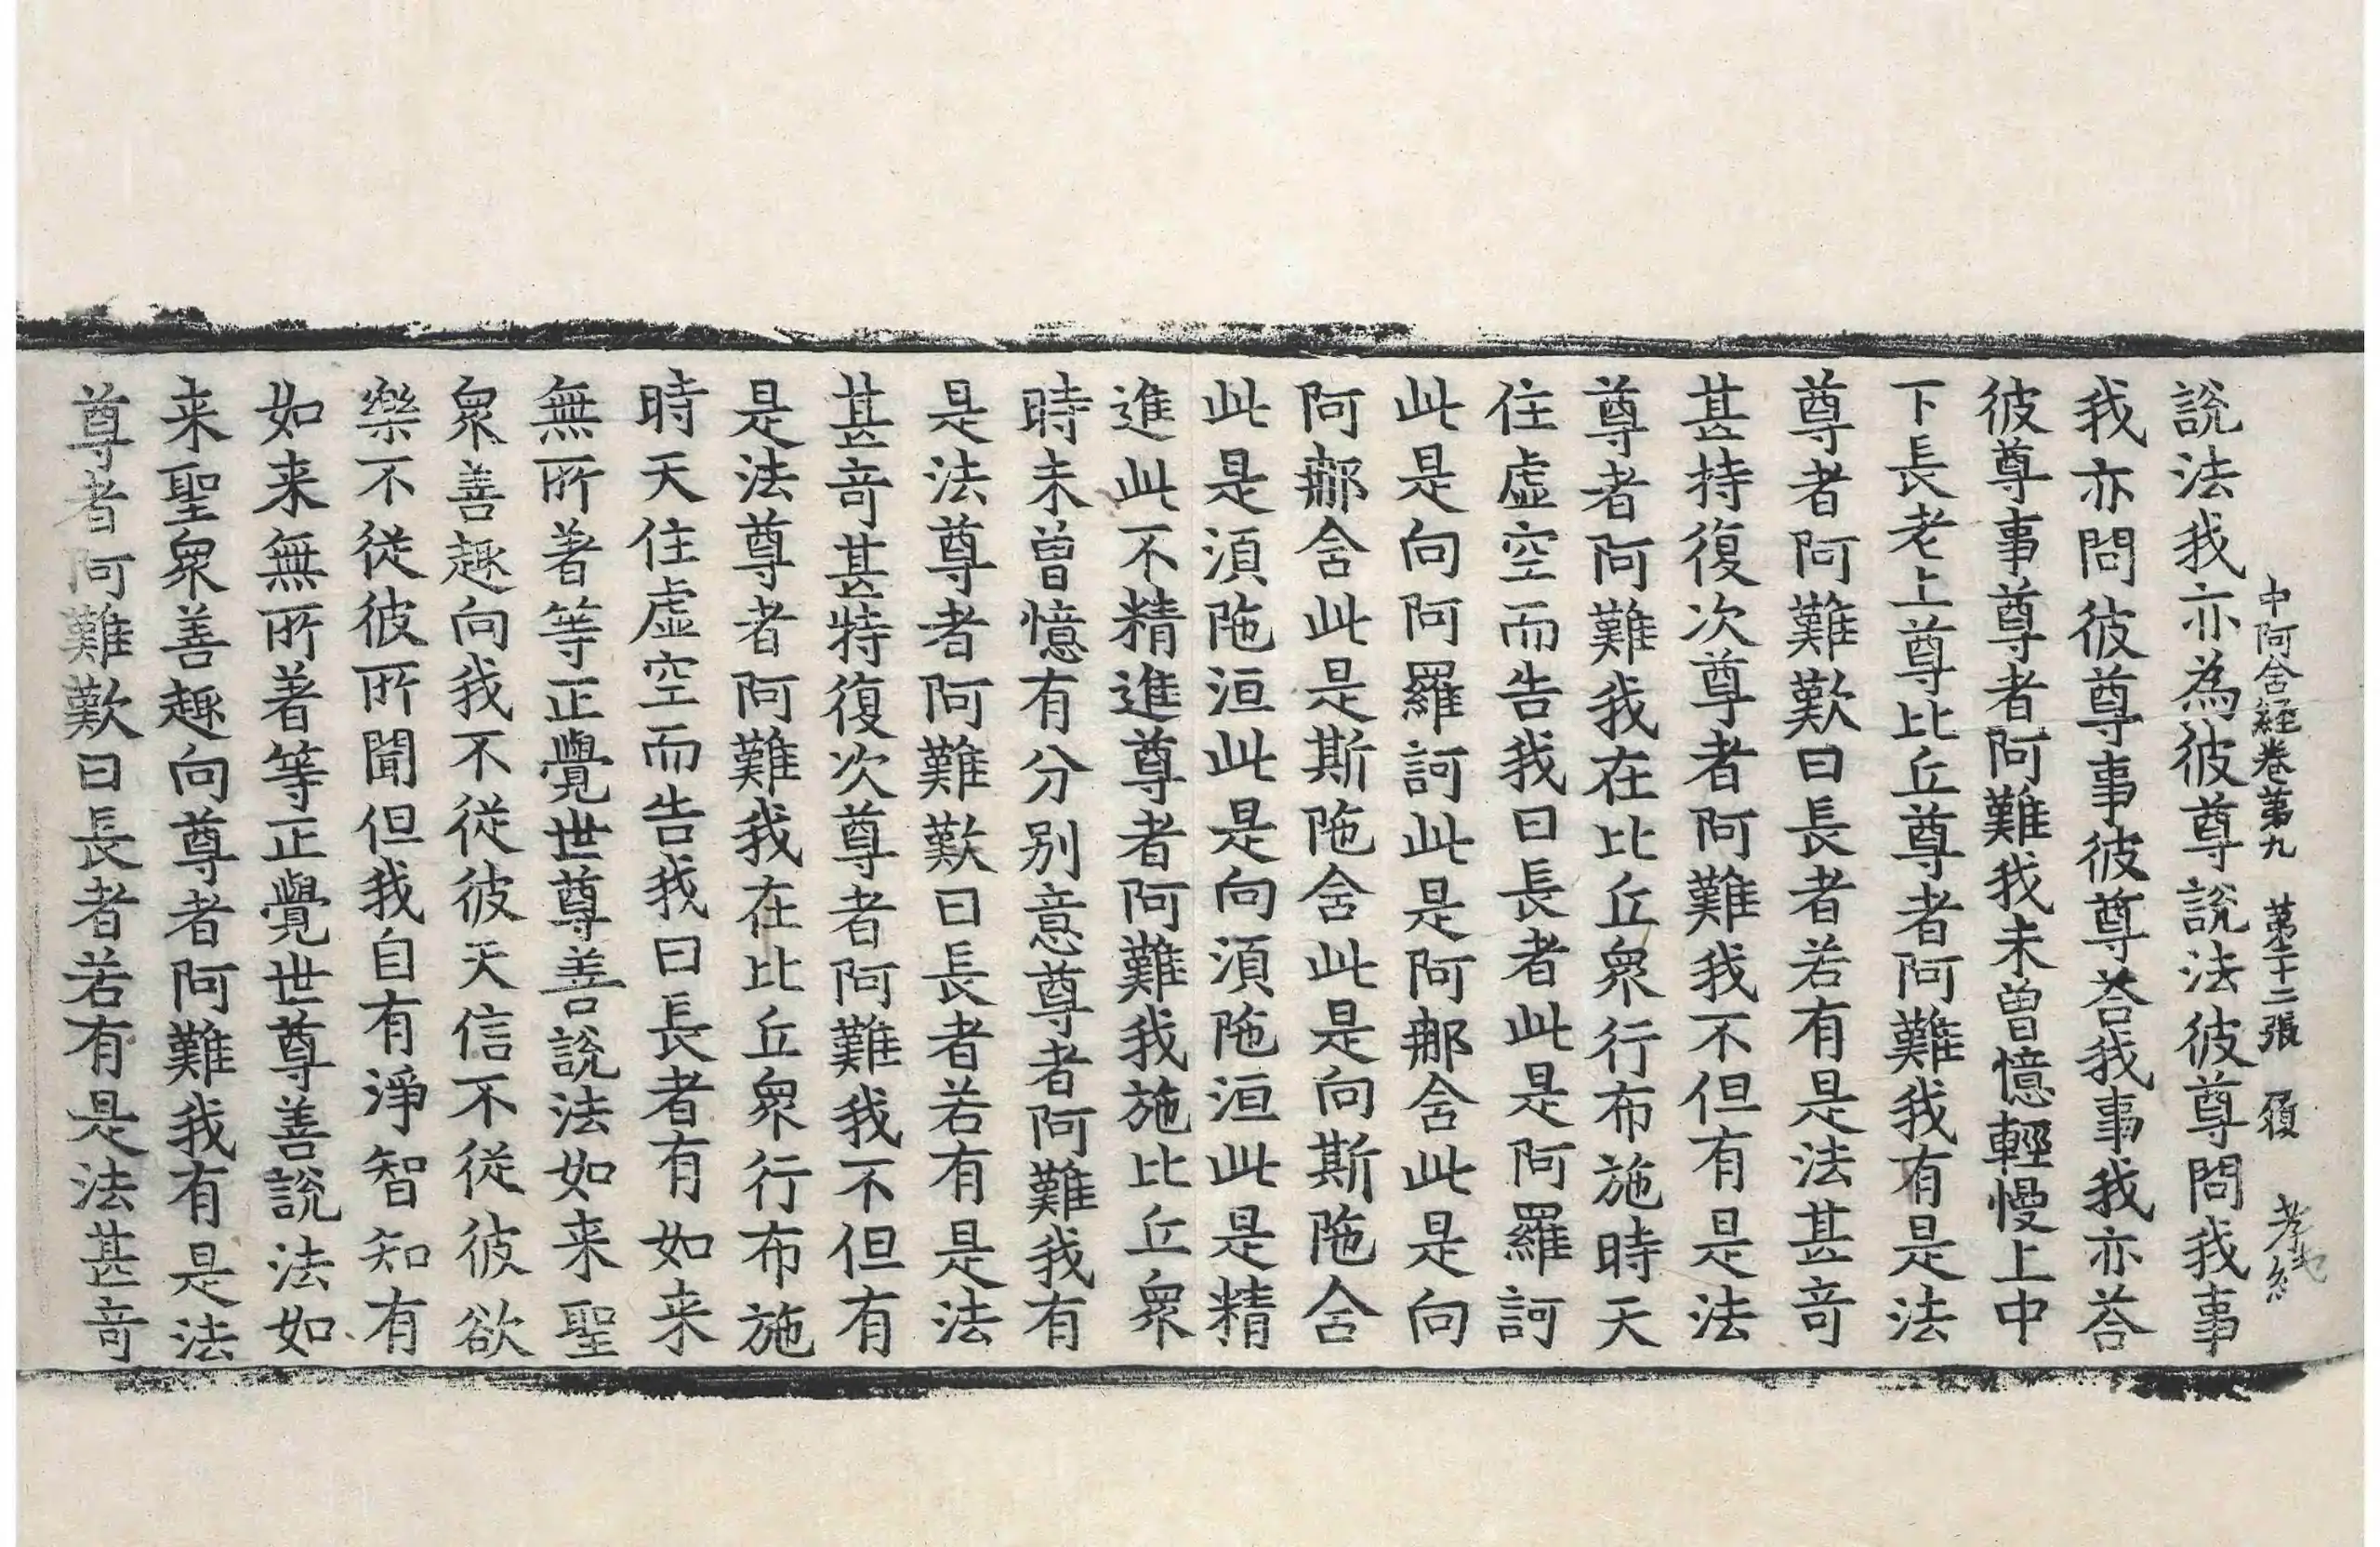 中阿含經卷第九　第十二張　履　孝純
說法我亦為彼尊說法彼尊問我事
我亦問彼尊事彼尊荅我事我亦荅
彼尊事尊者阿難我未曾憶輕慢上中
下長老上尊比丘尊者阿難我有是法
尊者阿難歎曰長者若有是法甚奇
甚持復次尊者阿難我不但有是法
尊者阿難我在比丘衆行布施時天
住虛空而告我曰長者此是阿羅訶
此是向阿羅訶此是阿那含此是向
阿那含此是斯陁含此是向斯陁含
此是湏陁洹此是向湏陁洹此是精
進此不精進尊者阿難我施比丘衆
時未曾憶有分別意尊者阿難我有
是法尊者阿難歎曰長者若有是法
甚奇甚特復次尊者阿難我不但有
是法尊者阿難我在比丘衆行布施
時天住虛空而告我曰長者有如来
無所著等正覺世尊善說法如来聖
衆善趣向我不從彼天信不從彼欲
樂不從彼所聞但我自有淨智知有
如来無所著等正覺世尊善說法如
来聖衆善趣向尊者阿難我有是法
尊者阿難歎曰長者若有是法甚奇